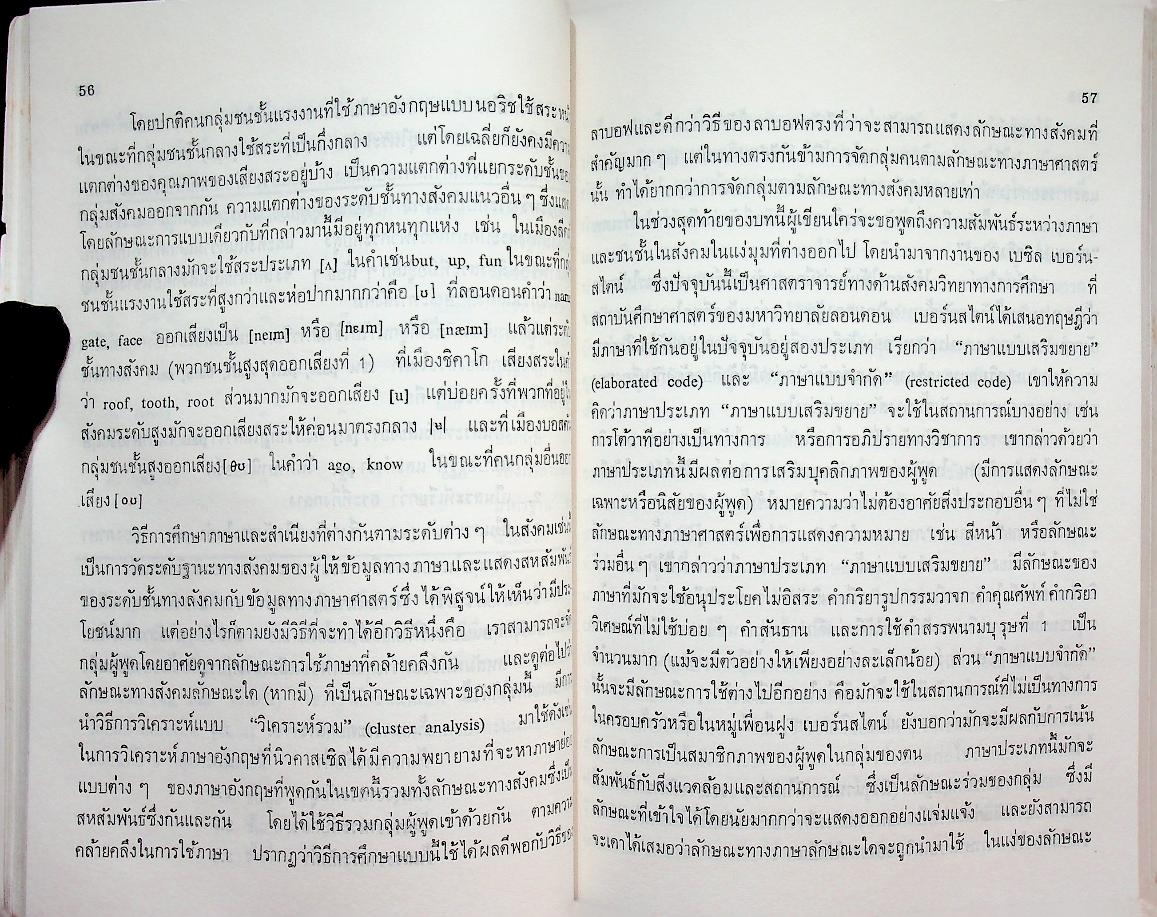 56
โดยปกติคนกลุ่มชนชั้นแรงงานที่ใช้ภาษาอังกฤษแบบนอริชใช้สระ
ในขณะที่กลุ่มชนชั้นกลางใช้สระที่เป็นกึ่งกลาง แต่โดยเฉลี่ยก็ยังคงมี
แตกต่างของคุณภาพของเสียงสระอยู่บ้าง เป็นความแตกต่างที่แยกระดับชั้น
กลุ่มสังคมออกจากกัน ความแตกต่างของระดับชั้นทางสังคมแนวอื่น ๆ
โดยลักษณะการแบบเดียวกับที่กล่าวมานี้มีอยู่ทุกหนทุกแห่ง เช่น ในเมือง
กลุ่มชนชั้นกลางมักจะใช้สระประเภท [ʌ] ในคำเช่น but, up, fun ในขณะที่
ชนชั้นแรงงานใช้สระที่สูงกว่าและห่อปากมากกว่าคือ [ʊ] ที่ลอนดอนคำว่า
gate, face ออกเสียงเป็น [neɪm] หรือ [nɛɪm] หรือ [næɪm] แล้วแต่
ชั้นทางสังคม (พวกชนชั้นสูงสุดออกเสียงที่ 1) ที่เมืองชิคาโก เสียงสระใน
ว่า roof, tooth, root ส่วนมากมักจะออกเสียง [u] แต่บ่อยครั้งที่พวกที่อยู่
สังคมระดับสูงมักจะออกเสียงสระให้ค่อนมาตรงกลาง [ʉ] และที่เมือง
กลุ่มชนชั้นสูงออกเสียง [θʊ] ในคำว่า ago, know ในขณะที่คนกลุ่มอื่น
เสียง [oʊ]
วิธีการศึกษาภาษาและสำเนียงที่ต่างกันตามระดับต่าง ๆ ในสังคม
เป็นการวัดระดับฐานะทางสังคมของผู้ให้ข้อมูลทางภาษาและแสดงสหสัมพันธ์
ของระดับชั้นทางสังคมกับข้อมูลทางภาษาศาสตร์ซึ่งได้พิสูจน์ให้เห็นว่ามีประ
โยชน์มาก แต่อย่างไรก็ตามยังมีวิธีที่จะทำได้อีกวิธีหนึ่งคือ เราสามารถจะ
กลุ่มผู้พูดโดยอาศัยดูจากลักษณะการใช้ภาษาที่คล้ายคลึงกัน และดูต่อไป
ลักษณะทางสังคมลักษณะใด (หากมี) ที่เป็นลักษณะเฉพาะของกลุ่มนี้
นำวิธีการวิเคราะห์แบบ “วิเคราะห์รวม” (cluster analysis) มาใช้
ในการวิเคราะห์ภาษาอังกฤษที่นิวคาสเซิลได้มีความพยายามที่จะหาภาษา
แบบต่าง ๆ ของภาษาอังกฤษที่พูดกันในเขตนี้รวมทั้งลักษณะทางสังคมซึ่ง
สหสัมพันธ์ซึ่งกันและกัน โดยได้ใช้วิธีรวมกลุ่มผู้พูดเข้าด้วยกัน ตาม
คล้ายคลึงในการใช้ภาษา ปรากฏว่าวิธีการศึกษาแบบนี้ใช้ได้ผลดีพอกับ
57
ลาบอฟและดีกว่าวิธีของลาบอฟตรงที่ว่าจะสามารถแสดงลักษณะทางสังคมที่
สำคัญมาก ๆ แต่ในทางตรงกันข้ามการจัดกลุ่มคนตามลักษณะทางภาษาศาสตร์
นั้น ทำได้ยากกว่าการจัดกลุ่มตามลักษณะทางสังคมหลายเท่า
ในช่วงสุดท้ายของบทนี้ผู้เขียนใคร่จะขอพูดถึงความสัมพันธ์ระหว่างภาษา
และชนชั้นในสังคมในแง่มุมที่ต่างออกไป โดยนำมาจากงานของ เบซิล เบอร์น-
สไตน์ ซึ่งปัจจุบันนี้เป็นศาสตราจารย์ทางด้านสังคมวิทยาทางการศึกษา ที่
สถาบันศึกษาศาสตร์ของมหาวิทยาลัยลอนดอน เบอร์นสไตน์ได้เสนอทฤษฎีว่า
มีภาษาที่ใช้กันอยู่ในปัจจุบันอยู่สองประเภท เรียกว่า “ภาษาแบบเสริมขยาย”
(elaborated code) และ “ภาษาแบบจำกัด” (restricted code) เขาให้ความ
คิดว่าภาษาประเภท “ภาษาแบบเสริมขยาย” จะใช้ในสถานการณ์บางอย่าง เช่น
การโต้วาทีอย่างเป็นทางการ หรือการอภิปรายทางวิชาการ เขากล่าวด้วยว่า
ภาษาประเภทนี้มีผลต่อการเสริมบุคลิกภาพของผู้พูด (มีการแสดงลักษณะ
เฉพาะหรือนิสัยของผู้พูด) หมายความว่าไม่ต้องอาศัยสิ่งประกอบอื่น ๆ ที่ไม่ใช่
ลักษณะทางภาษาศาสตร์เพื่อการแสดงความหมาย เช่น สีหน้า หรือลักษณะ
ร่วมอื่น ๆ เขากล่าวว่าภาษาประเภท “ภาษาแบบเสริมขยาย” มีลักษณะของ
ภาษาที่มักจะใช้อนุประโยคไม่อิสระ คำกริยารูปกรรมวาจก คำคุณศัพท์ คำกริยา
วิเศษณ์ที่ไม่ใช้บ่อย ๆ คำสันธาน และการใช้คำสรรพนามบุรุษที่ 1 เป็น
จำนวนมาก (แม้จะมีตัวอย่างให้เพียงอย่างละเล็กน้อย) ส่วน “ภาษาแบบจำกัด”
นั้นจะมีลักษณะการใช้ต่างไปอีกอย่าง คือมักจะใช้ในสถานการณ์ที่ไม่เป็นทางการ
ในครอบครัวหรือในหมู่เพื่อนฝูง เบอร์นสไตน์ ยังบอกว่ามักจะมีผลกับการเน้น
ลักษณะการเป็นสมาชิกภาพของผู้พูดในกลุ่มของตน ภาษาประเภทนี้มักจะ
สัมพันธ์กับสิ่งแวดล้อมและสถานการณ์ ซึ่งเป็นลักษณะร่วมของกลุ่ม ซึ่งมี
ลักษณะที่เข้าใจได้โดยนัยมากกว่าจะแสดงออกอย่างแจ่มแจ้ง และยังสามารถ
จะเดาได้เสมอว่าลักษณะทางภาษาลักษณะใดจะถูกนำมาใช้ ในแง่ของลักษณะ